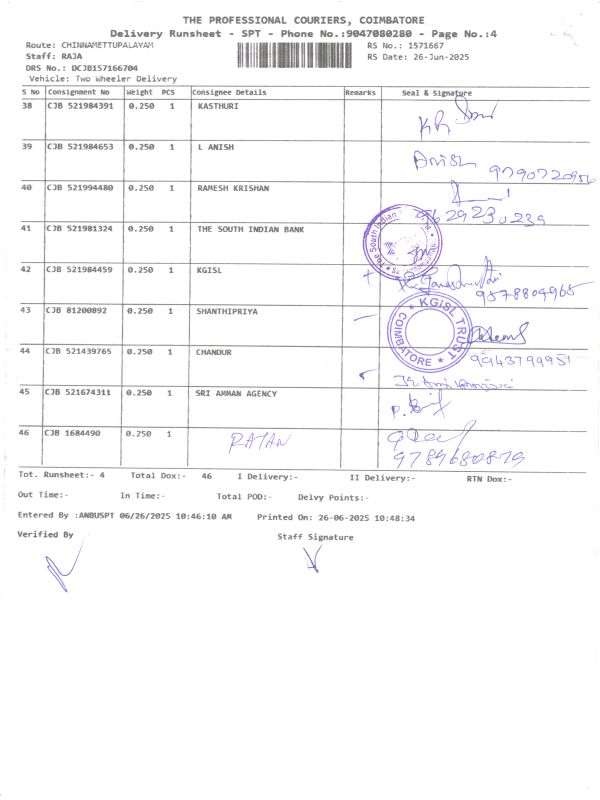 THE PROFESSIONAL COURIERS, COIMBATORE
Delivery Runsheet - SPT - Phone No.:9047080280 - Page No.:4
Route: CHINNAMETTUPALAYAM RS No.: 1571667
Staff: RAJA RS Date: 26-Jun-2025
DRS No.: DCJB157166704
Vehicle: Two Wheeler Delivery
S No Consignment No Weight PCS Consignee Details Remarks Seal & Signature
38 CJB 521984391 0.250 1 KASTHURI
39 CJB 521984653 0.250 1 L ANISH Anish 9790720956
40 CJB 521994480 0.250 1 RAMESH KRISHAN
41 CJB 521981324 0.250 1 THE SOUTH INDIAN BANK The South Indian
42 CJB 521984459 0.250 1 KGISL 9578804965
43 CJB 81200892 0.250 1 SHANTHIPRIYA KGISL TRUST COIMBATORE
9943799951
44 CJB 521439765 0.250 1 CHANDUR
45 CJB 521674311 0.250 1 SRI AMMAN AGENCY
46 CJB 1684490 0.250 1 RAJAN 9789680879
Tot. Runsheet:- 4 Total Dox:- 46 I Delivery:- II Delivery:- RTN Dox:-
Out Time:- In Time:- Total POD:- Delvy Points:-
Entered By :ANBUSPT 06/26/2025 10:46:10 AM Printed On: 26-06-2025 10:48:34
Verified By Staff Signature